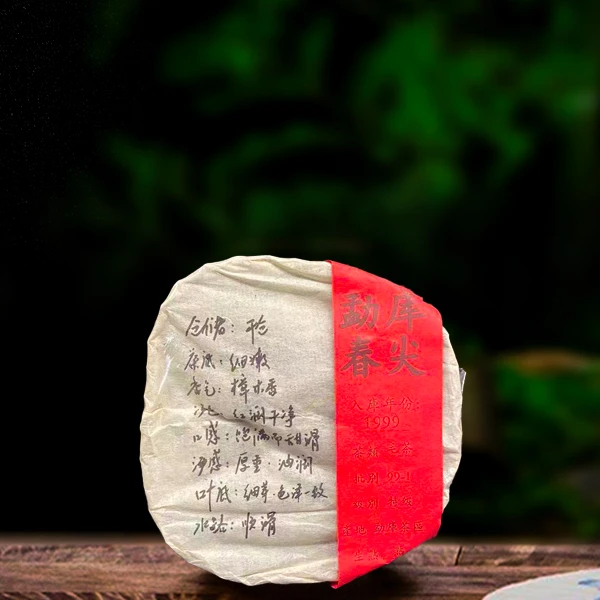 仓储：干仓
原底：细嫩
香气：樟木香
汤色：红润干净
口感：饱满而甜滑
汤感：厚重·油润
叶底：细芽·色泽一致
水路：顺滑
勐库
春尖
入库年份：
1999
茶类
99-1
勐库茶区